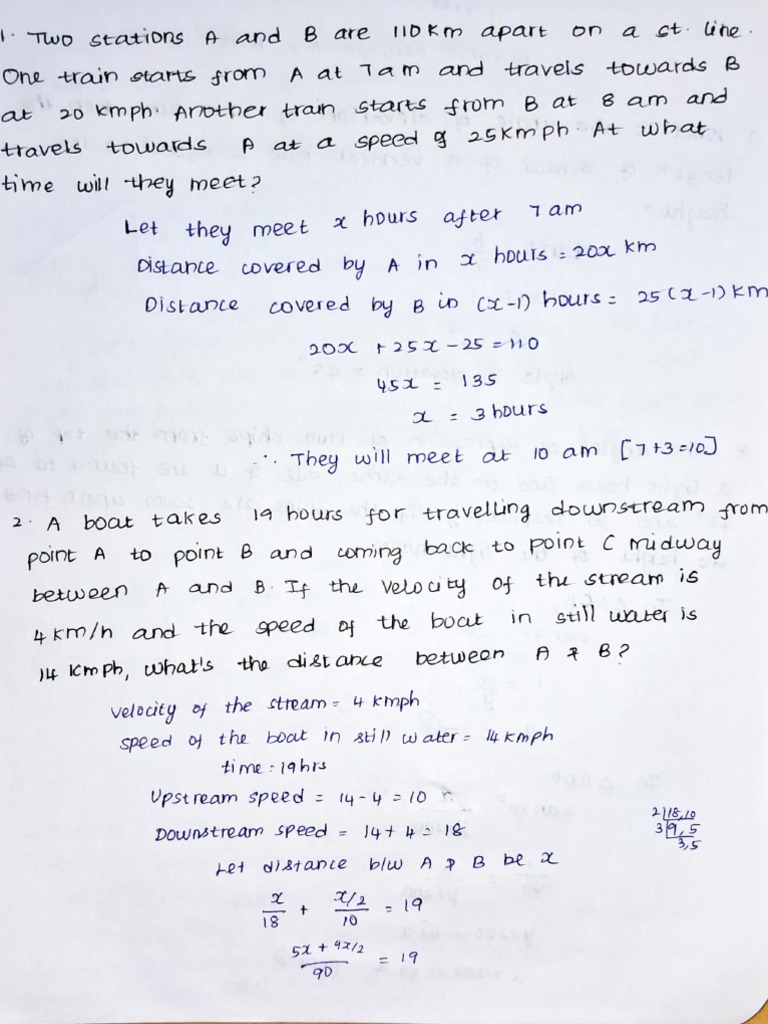 1. Two stations A and B are 110km apart on a st. line.
One train starts from A at 7am and travels towards B
at 20 kmph. Another train starts from B at 8 am and
travels towards A at a speed of 25kmph. At what
time will they meet?
Let they meet x hours after 7am
Distance covered by A in x hours = 20x km
Distance covered by B in (x-1) hours = 25(x-1) km
20x + 25x - 25 = 110
45x = 135
x = 3 hours
∴ They will meet at 10 am [7+3=10]
2. A boat takes 19 hours for travelling downstream from
point A to point B and coming back to point C midway
between A and B. If the velocity of the stream is
4 km/h and the speed of the boat in still water is
14 kmph, what's the distance between A & B?
velocity of the stream = 4 kmph
speed of the boat in still water = 14 kmph
time : 19 hrs
Upstream speed = 14 - 4 = 10
Downstream speed = 14 + 4 = 18
2|18,10
3|9,5
3,5
Let distance b/w A & B be x
x/18 + x/2/10 = 19
5x + 9x/2 / 90 = 19